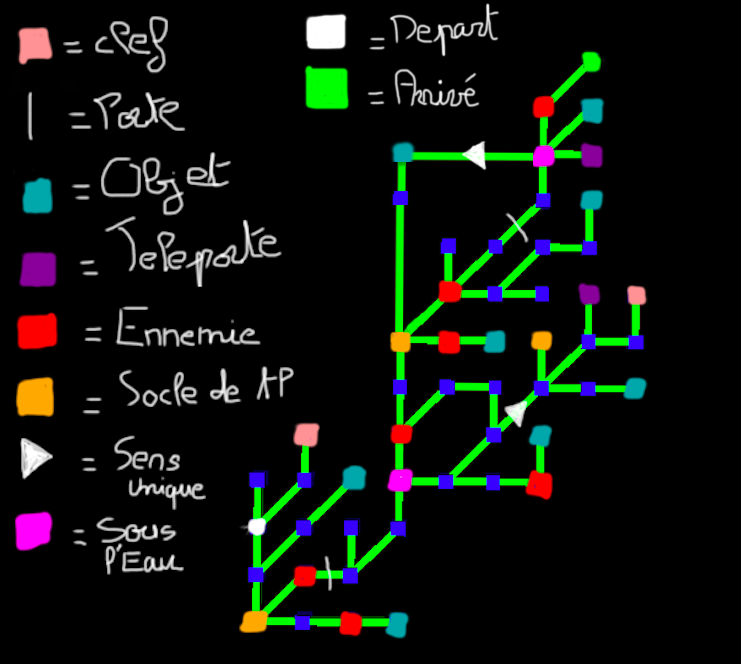 = clef
= Porte
= Objet
= Teleporte
= Ennemie
= Socle de TP
= Sens
unique
= Sous
l'Eau
= Depart
= Arrivé